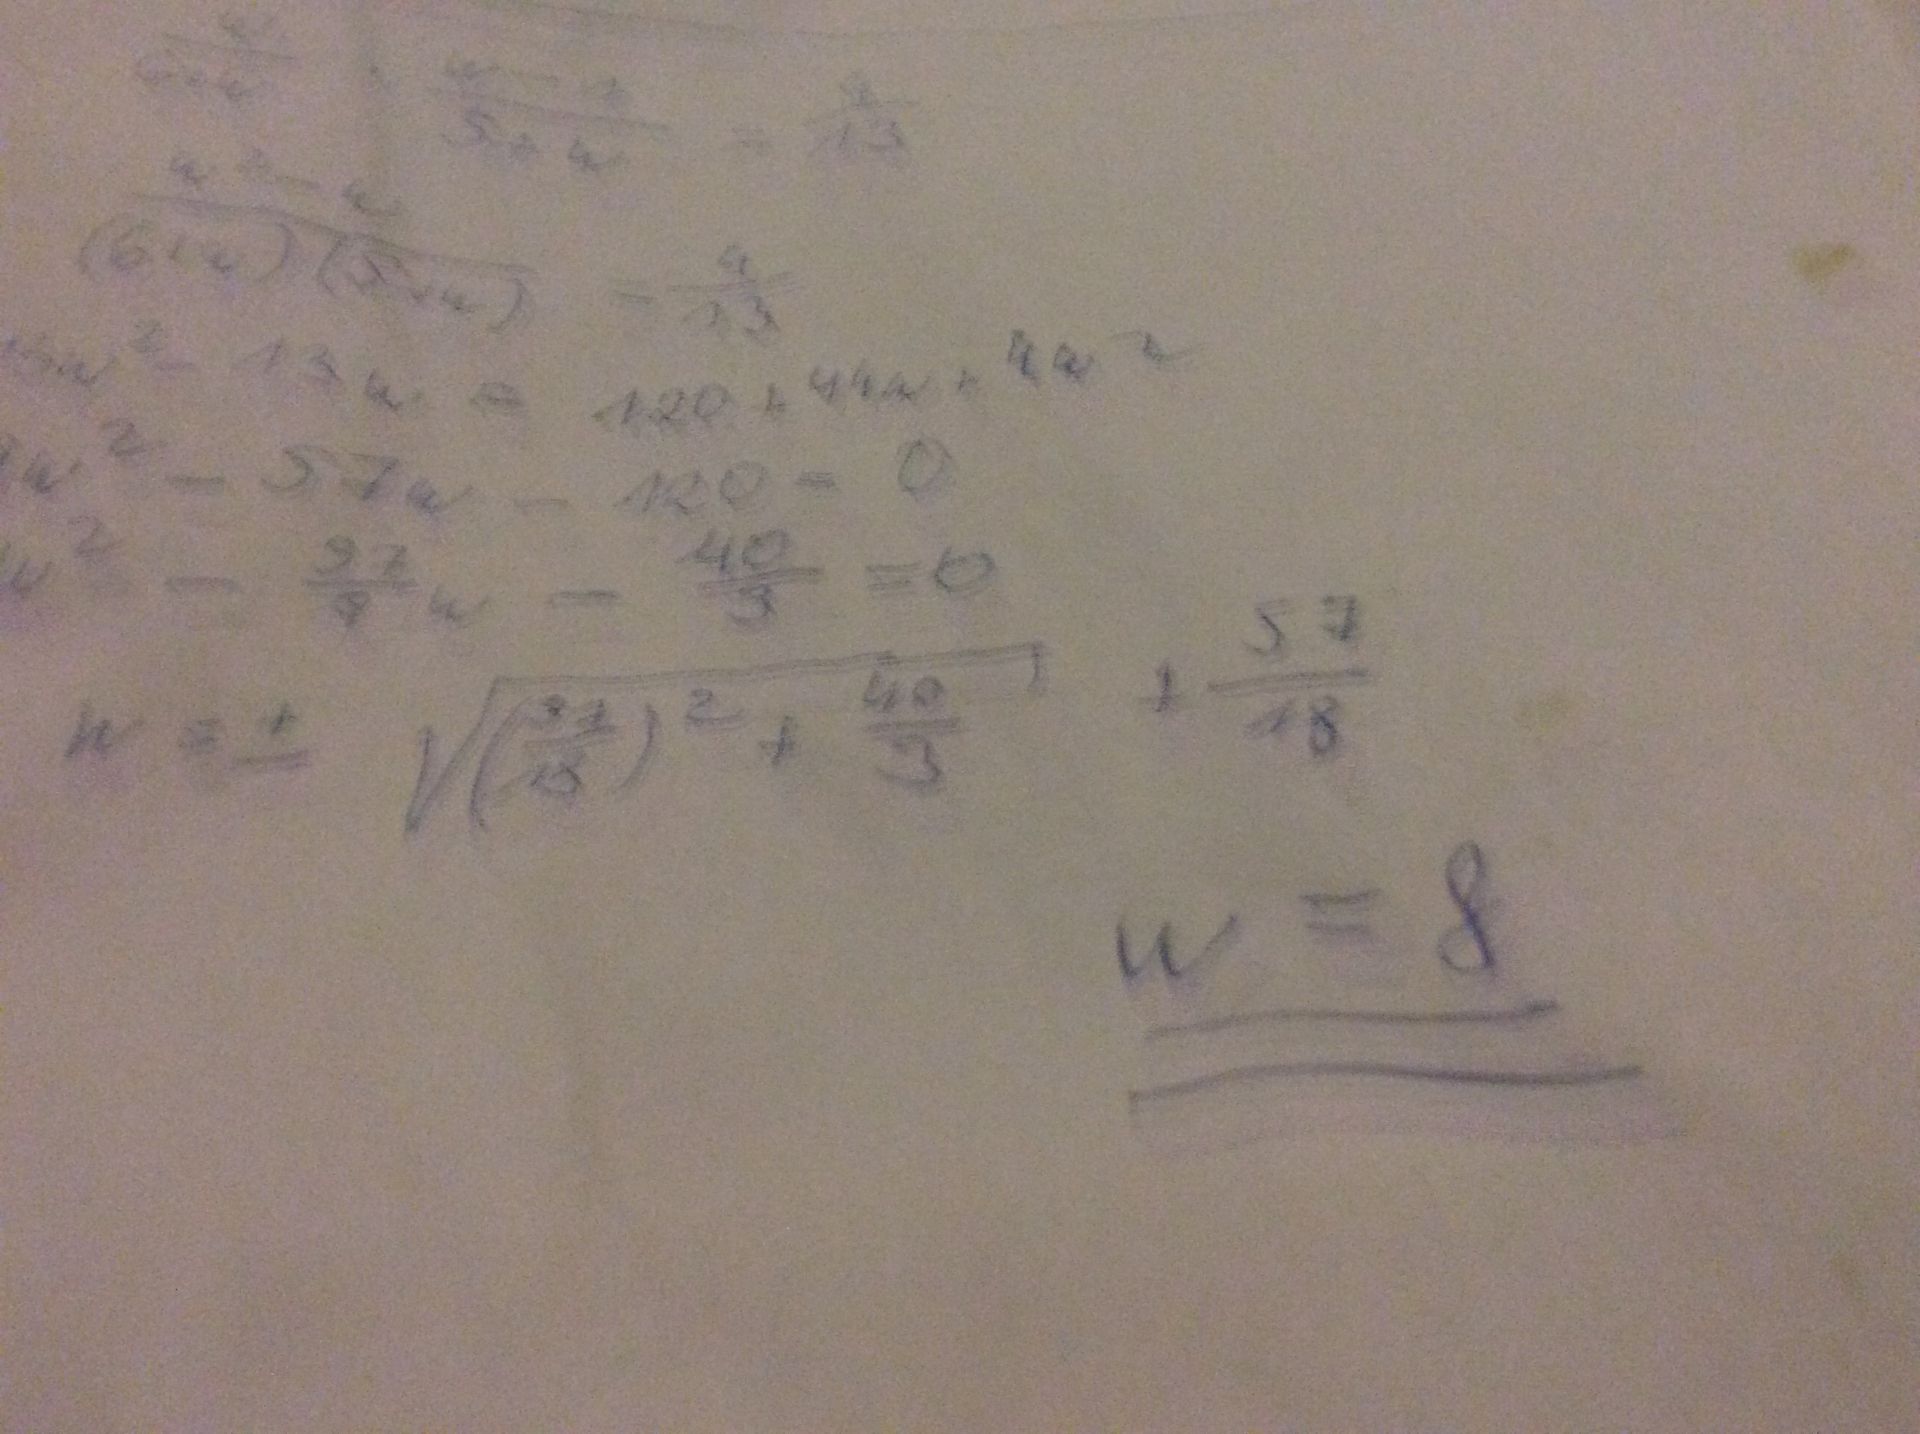 w/(6+w) · (w-1)/(5+w) = 4/13
(w² - w)/((6+w)(5+w)) = 4/13
13w² - 13w = 120 + 44w + 4w²
9w² - 57w - 120 = 0
w² - 57/9 w - 40/3 = 0
w = ± √((57/18)² + 40/3) + 57/18
w = 8